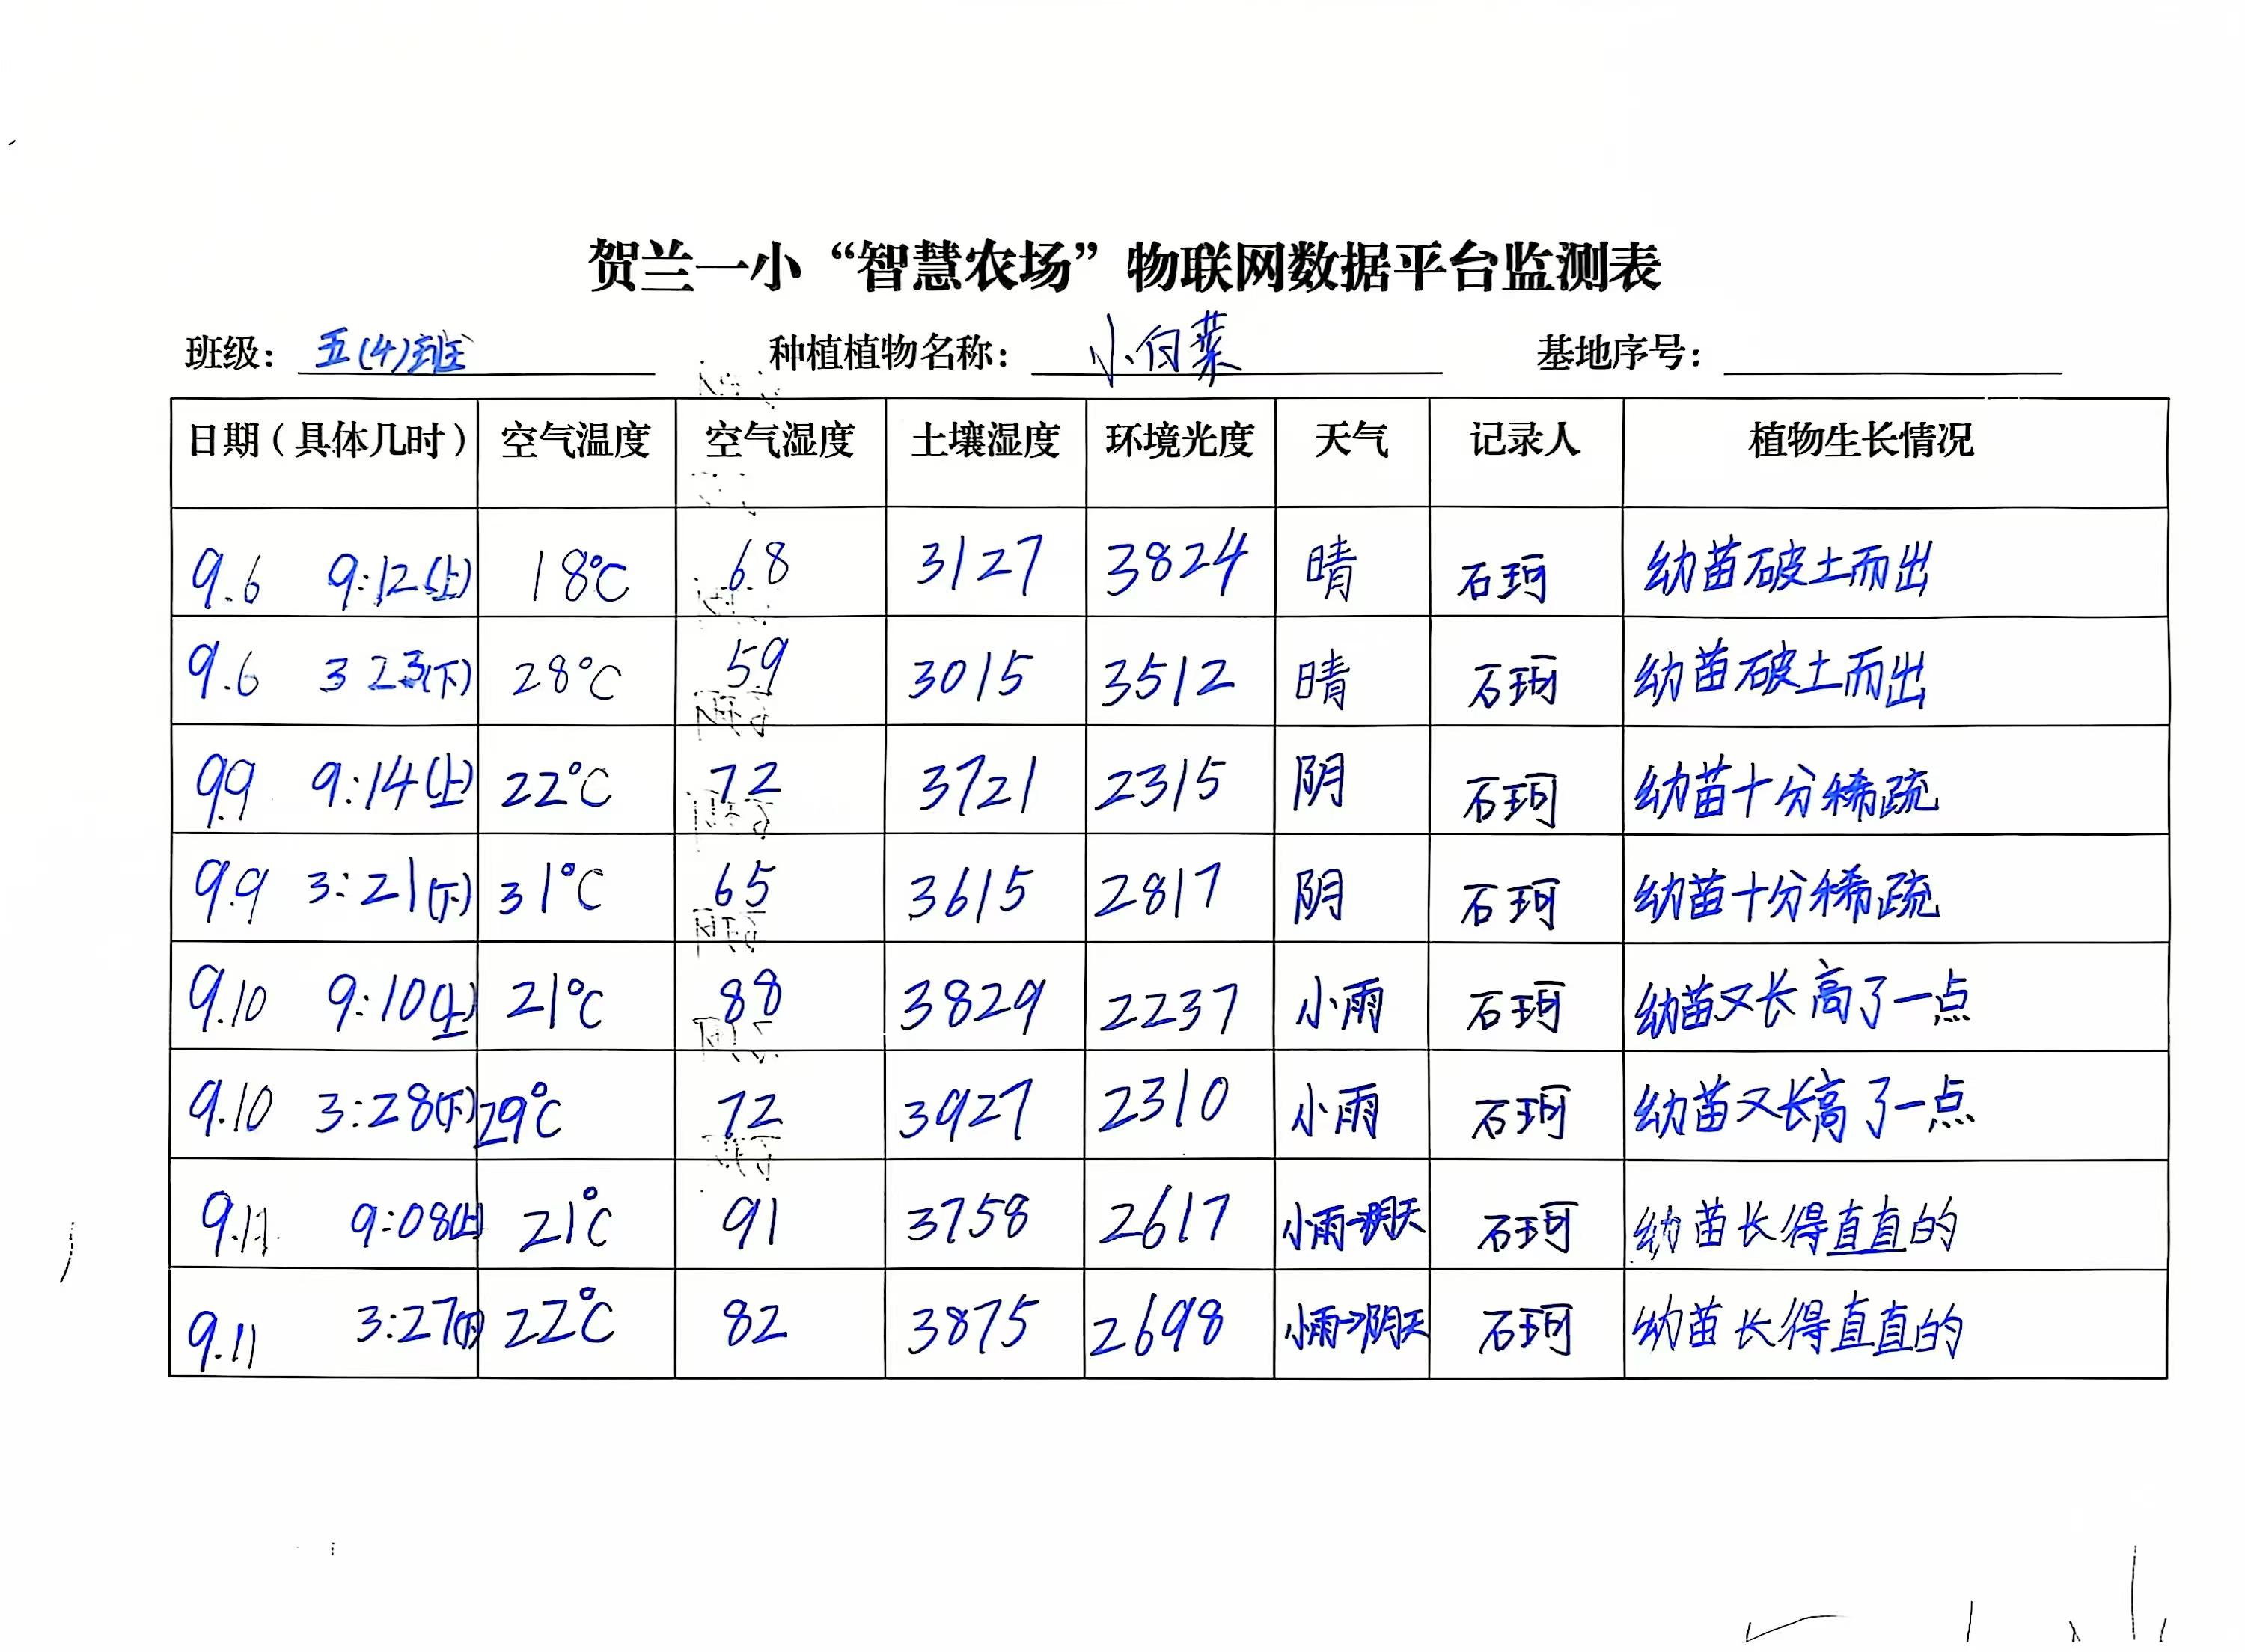 贺兰一小“智慧农场”物联网数据平台监测表
班级：五(4)班 种植植物名称：小白菜 基地序号：
日期（具体几时） 空气温度 空气湿度 土壤湿度 环境光度 天气 记录人 植物生长情况
9.6 9:12(上) 18℃ 68 3127 3824 晴 石珂 幼苗破土而出
9.6 3 23(下) 28℃ 59 3015 3512 晴 石珂 幼苗破土而出
9.9 9:14(上) 22℃ 72 3721 2315 阴 石珂 幼苗十分稀疏
9.9 3:21(下) 31℃ 65 3615 2817 阴 石珂 幼苗十分稀疏
9.10 9:10(上) 21℃ 88 3829 2237 小雨 石珂 幼苗又长高了一点
9.10 3:28(下) 29℃ 72 3927 2310 小雨 石珂 幼苗又长高了一点
9.11 9:08(上) 21℃ 91 3758 2617 小雨→阴天 石珂 幼苗长得直直的
9.11 3:27(下) 22℃ 82 3875 2698 小雨→阴天 石珂 幼苗长得直直的